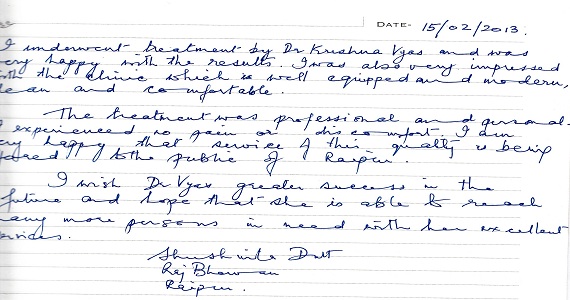 DATE- 15/02/2013.
I underwent treatment by Dr Krishna Vyas and was
ery happy with the results. I was also very impressed
ith the clinic which is well equipped and modern,
lean and comfortable.
The treatment was professional and personal.
I experienced no pain or discomfort. I am
ery happy that service of this quality is being
to the public of Raipur.
I wish Dr Vyas greater success in the
future and hope that she is able to reach
any more persons in need with her excellent
ervices.
Dutt
Raj Bhawan
Raipur.